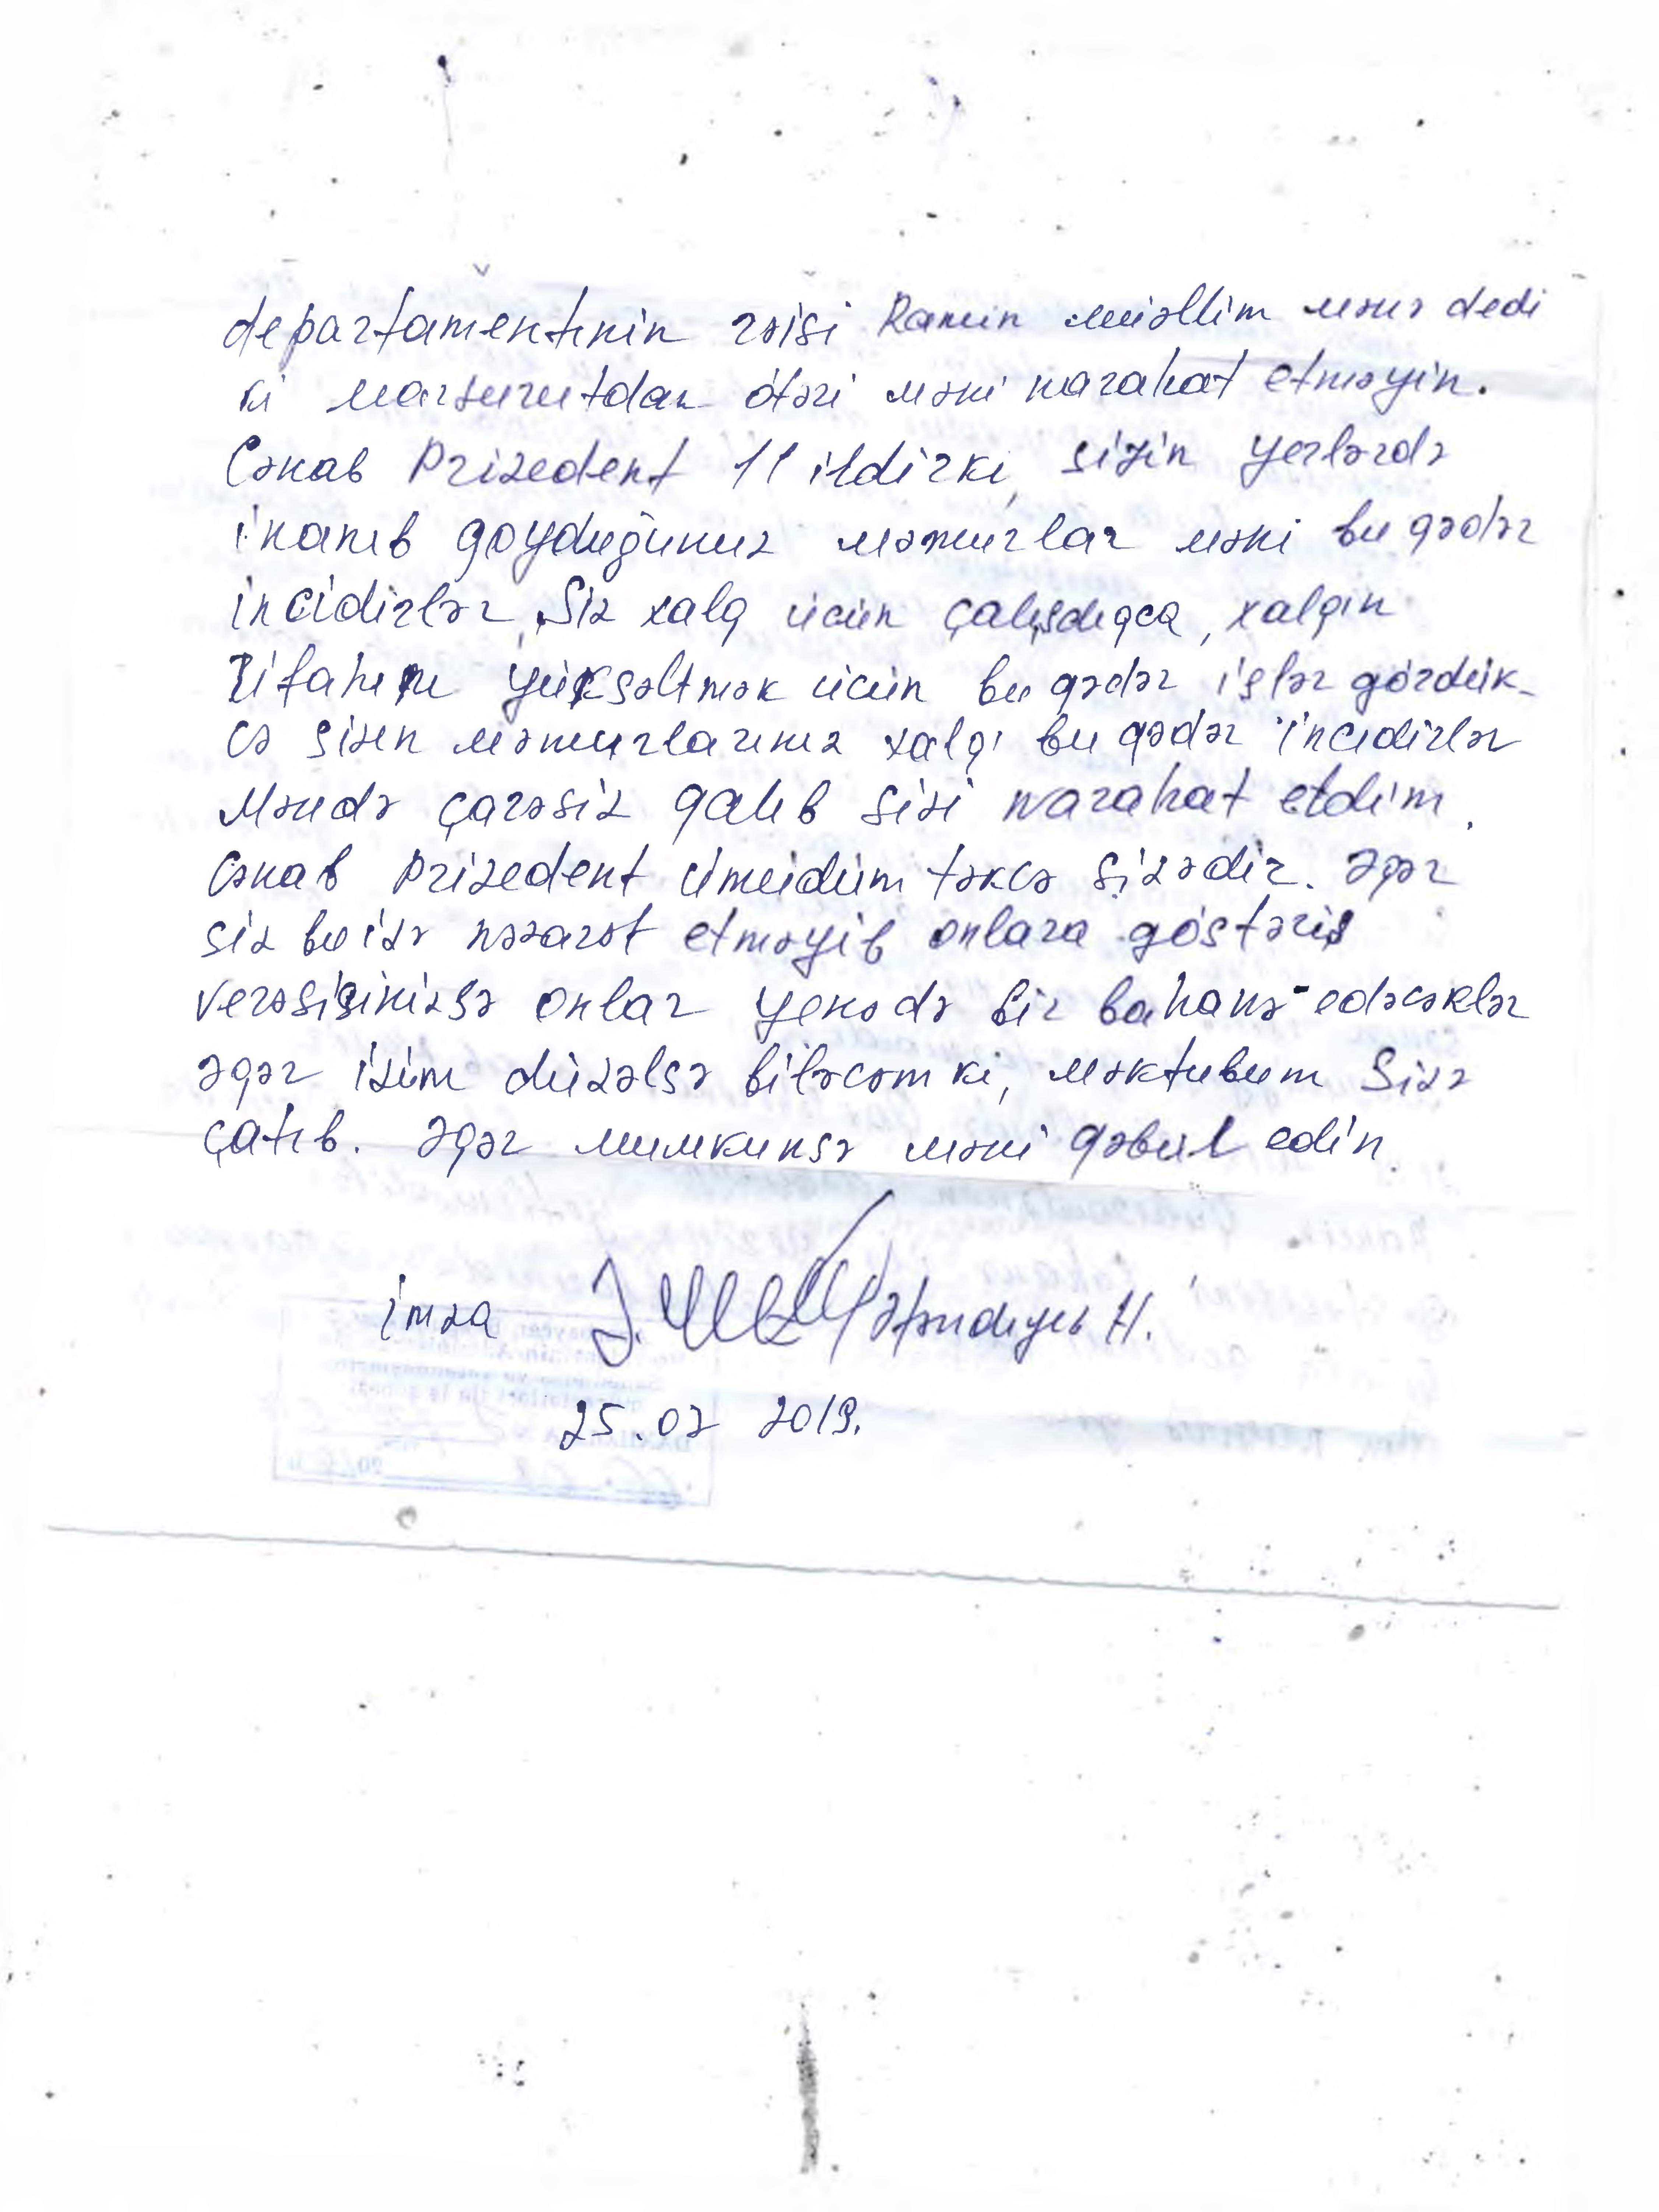 departamentinin rəisi Ramin müəllim mənə dedi
ki marşurutdan ötəri məni narahat etməyin.
Cənab Prizedent 11 ildirki, sizin yerlərdə
inanıb qoyduğunuz məmurlar məni bu qədər
incidirlər, Siz xalq ücün çalışdıqca, xalqın
rifahını yüksəltmək ücün bu qədər işlər gördük-
cə sizin məmurlarınız xalqı bu qədər incidirlər
Məndə çarəsiz qalıb sizi narahat etdim.
Cənab Prizedent ümüidüm təkcə sizədir. Əgər
siz bu izə nəzarət etməyib onlara göstəriş
verəsisinizsə onlar yenədə bir bahanə edəcəklər
əgər izim düzəlsə biləcəm ki, məktubum Sizə
çatıb. Əgər mumkunsə məni qəbul edin.
imza Əfəndıyev H.
25.07 2019.